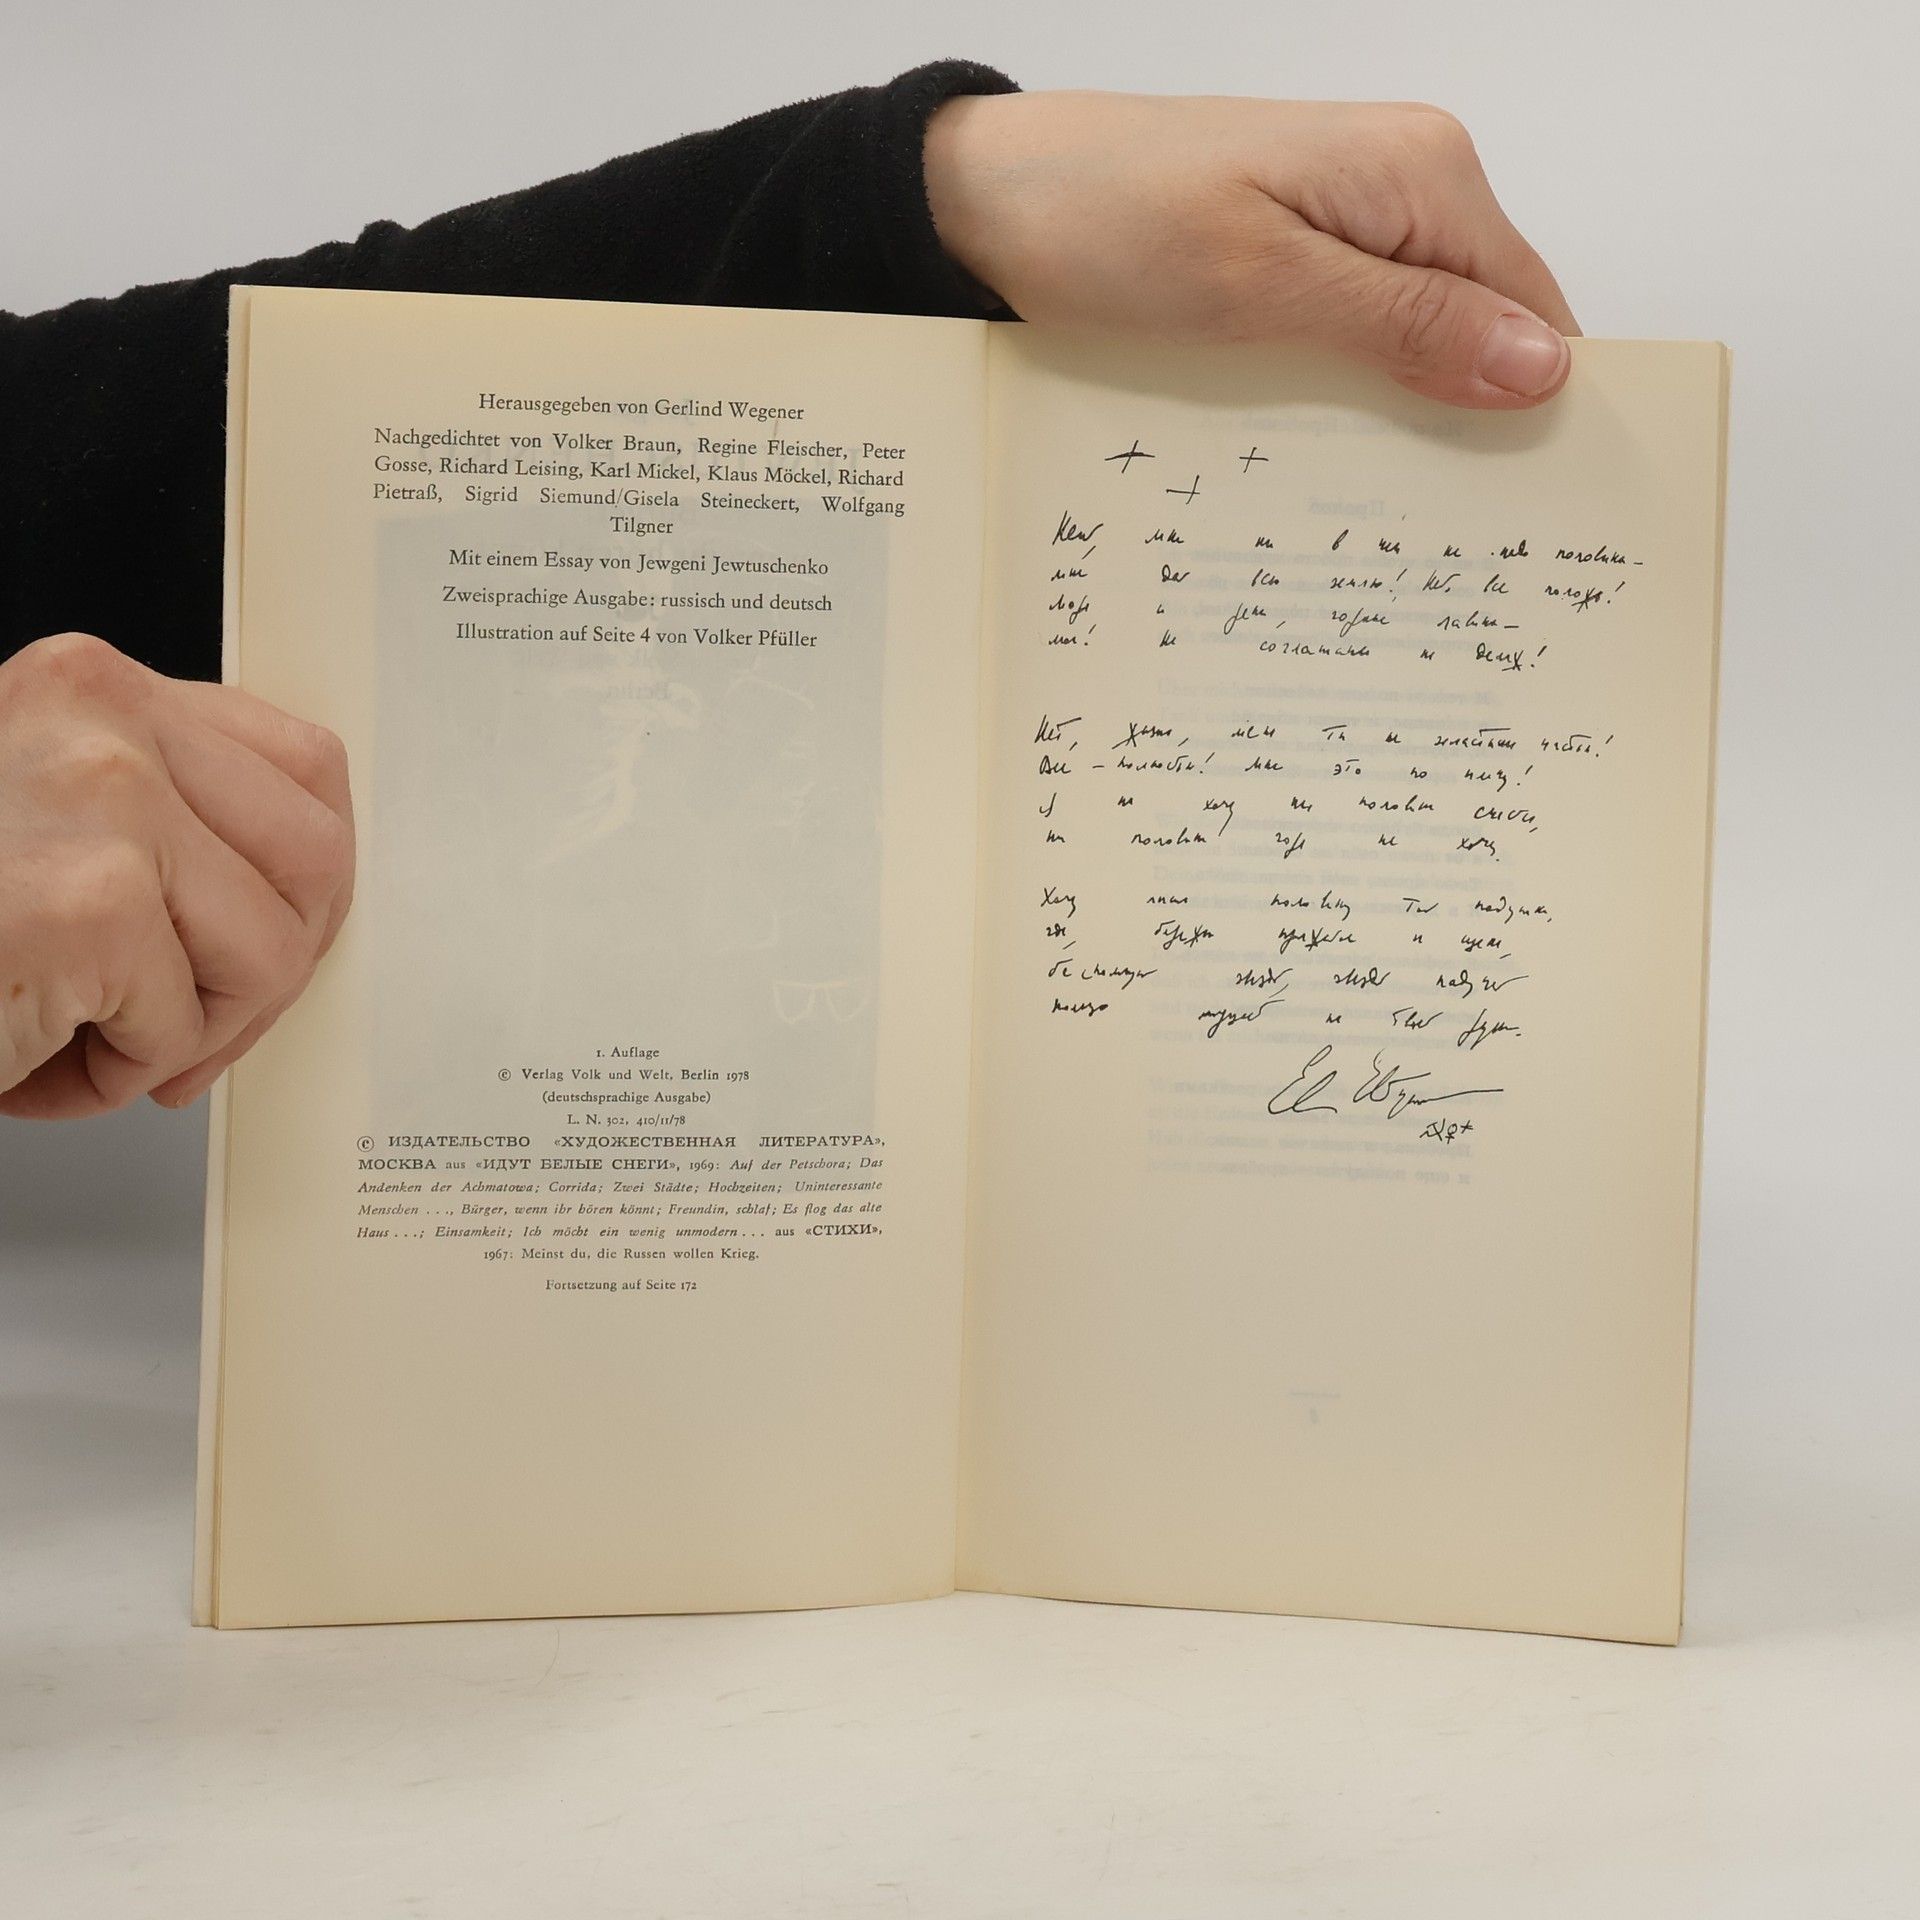 Herausgegeben von Gerlind Wegener
Nachgedichtet von Volker Braun, Regine Fleischer, Peter
Gosse, Richard Leising, Karl Mickel, Klaus Möckel, Richard
Pietraß, Sigrid Siemund/Gisela Steineckert, Wolfgang
Tilgner
Mit einem Essay von Jewgeni Jewtuschenko
Zweisprachige Ausgabe: russisch und deutsch
Illustration auf Seite 4 von Volker Pfüller
1. Auflage
© Verlag Volk und Welt, Berlin 1978
(deutschsprachige Ausgabe)
L. N. 302, 410/11/78
© ИЗДАТЕЛЬСТВО «ХУДОЖЕСТВЕННАЯ ЛИТЕРАТУРА»,
МОСКВА aus «ИДУТ БЕЛЫЕ СНЕГИ», 1969: Auf der Petschora; Das
Andenken der Achmatowa; Corrida; Zwei Städte; Hochzeiten; Uninteressante
Menschen . . ., Bürger, wenn ihr hören könnt; Freundin, schlaf; Es flog das alte
Haus . . .; Einsamkeit; Ich möcht ein wenig unmodern . . . aus «СТИХИ»,
1967: Meinst du, die Russen wollen Krieg.
Fortsetzung auf Seite 172
Нет, мне ни в чем не надо половины —
мне дай всю землю! Небо все положь!
Моря и реки, горные лавины —
мои! Не соглашаюсь на дележ!
Нет, жизнь, меня ты не заластишь частью!
Все — полностью! мне это по плечу!
Я не хочу ни половины счастья,
ни половины горя не хочу.
Хочу лишь половину той подушки,
где, бережно прижатое к щеке,
беспомощной звездой, звездой падучей
кольцо мерцает на твоей руке.